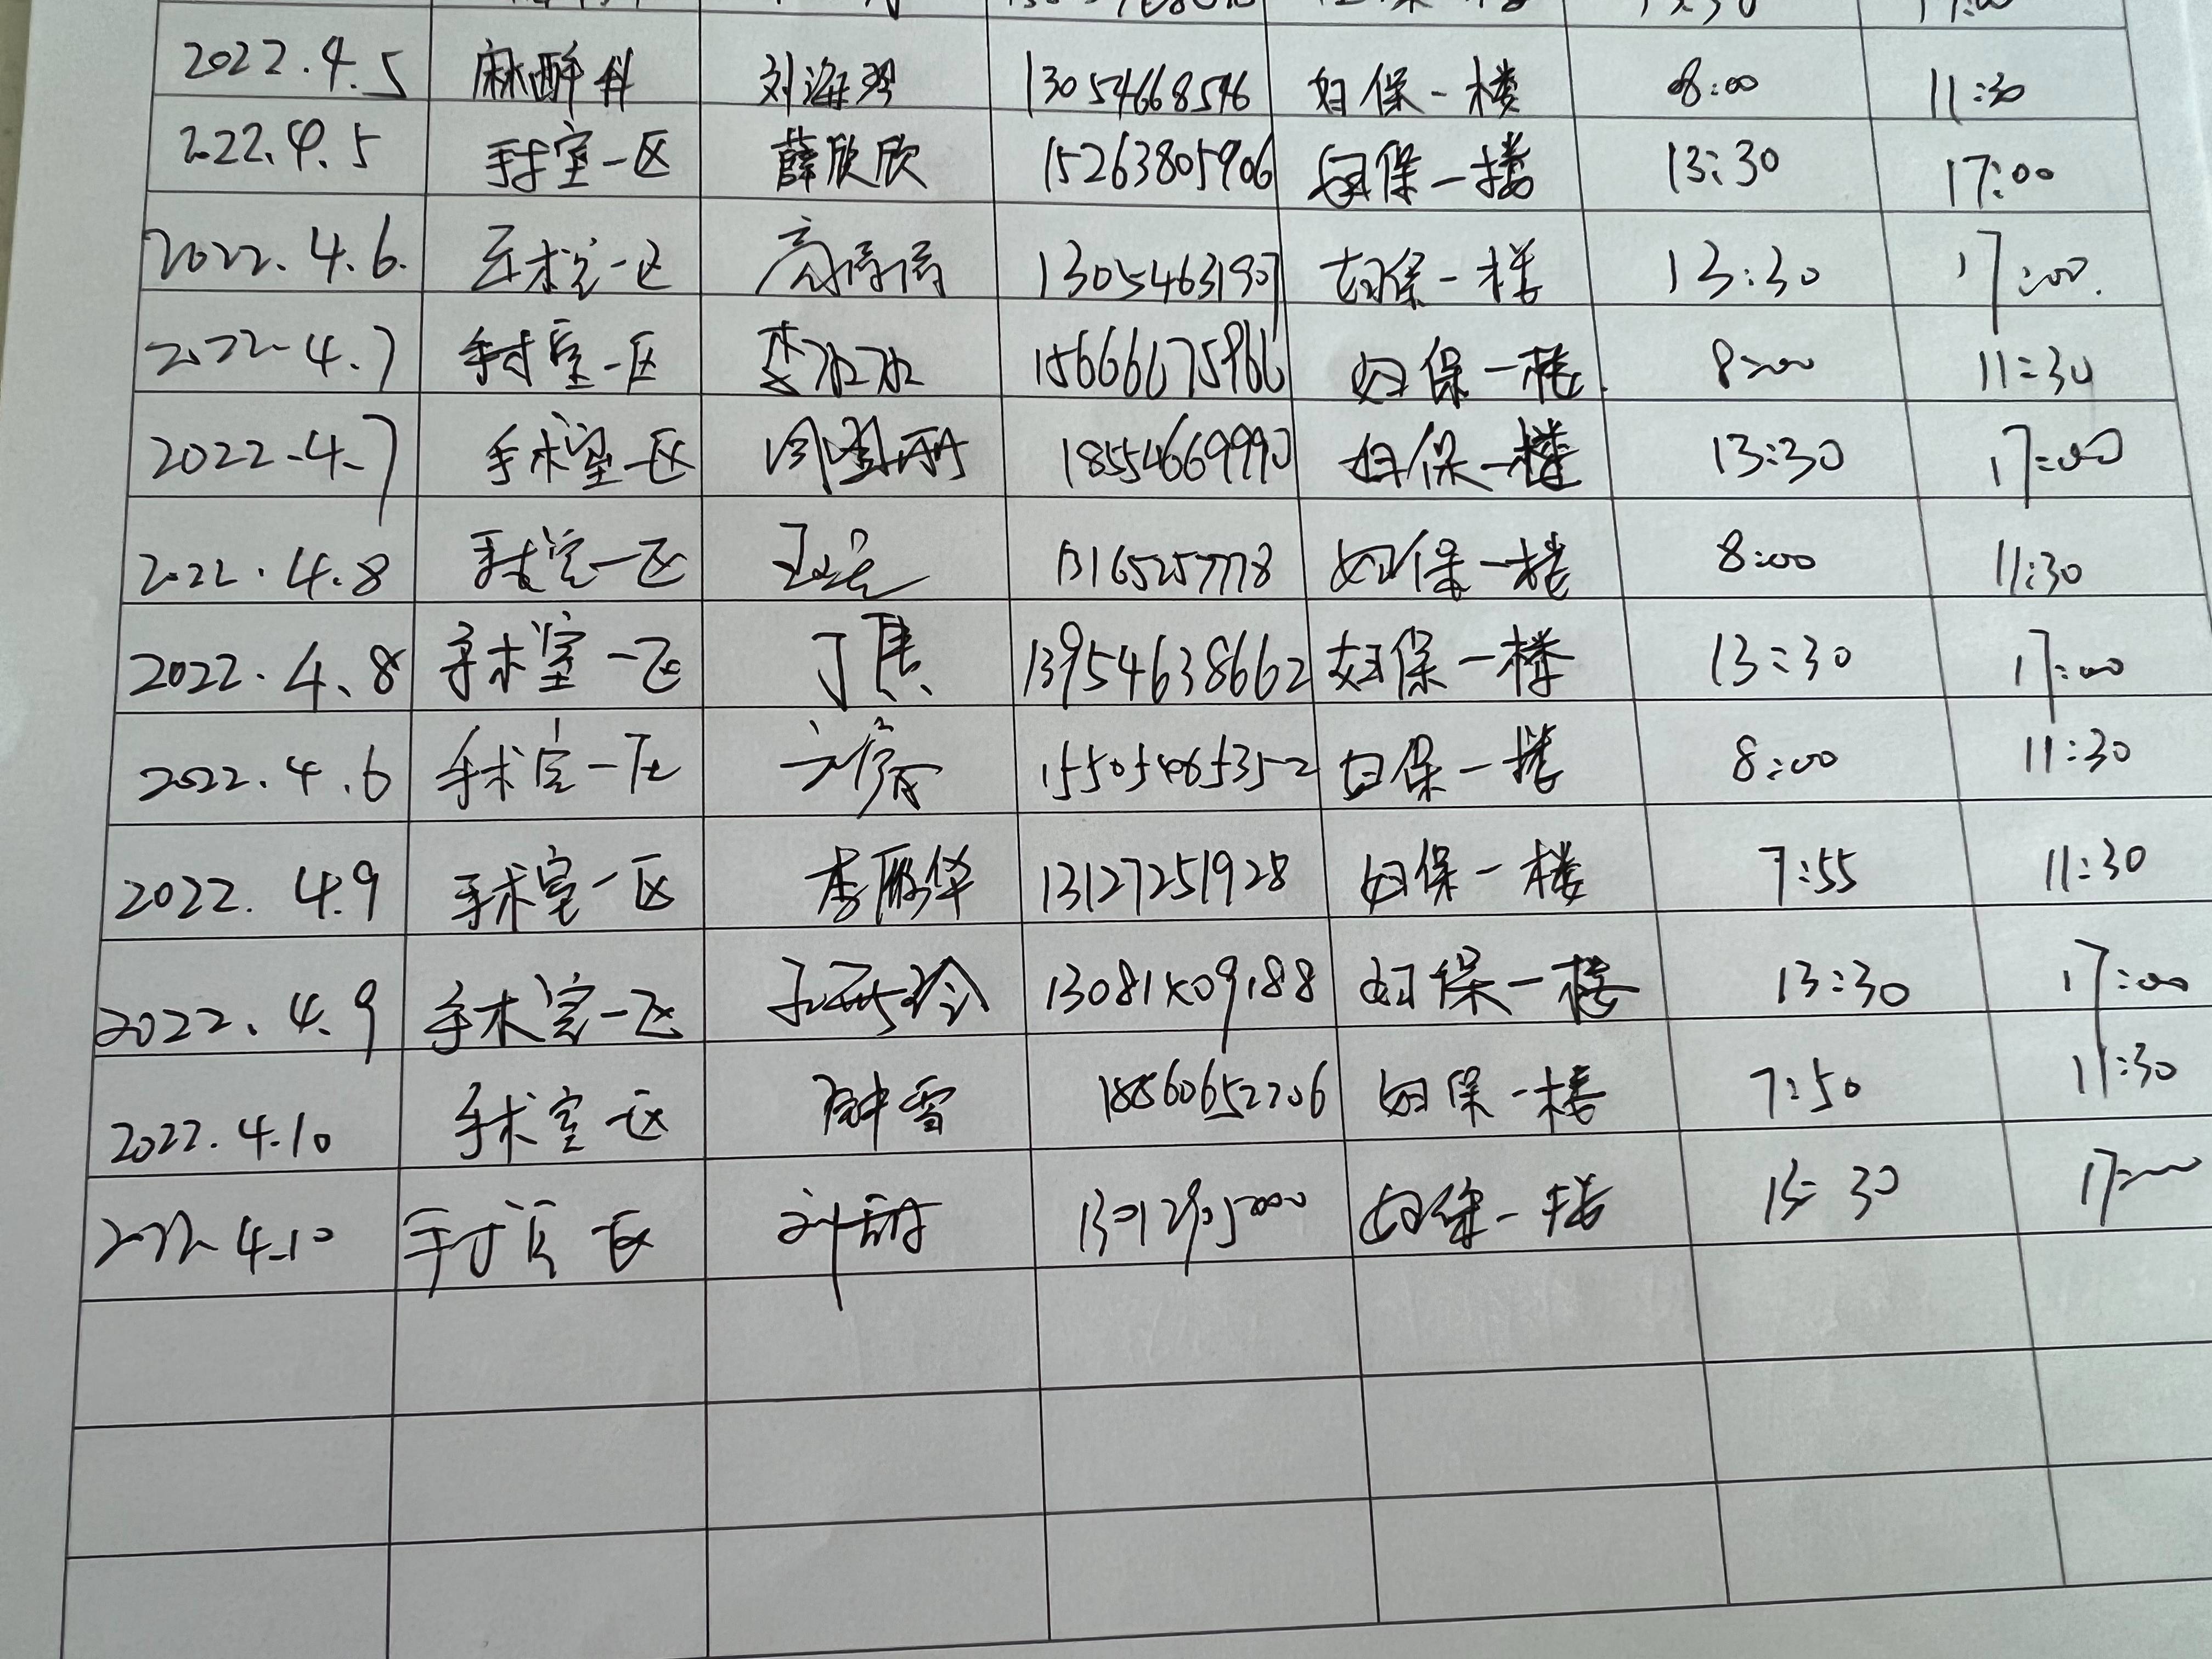 2022.4.5 麻醉科 刘海玲 13054668546 妇保一楼 8:00 11:30
2022.4.5 手术室一区 薛欣欣 15263805906 妇保一楼 13:30 17:00
2022.4.6. 手术室一区 高倩倩 13054631907 妇保一楼 13:30 17:00.
2022.4.7 手术室一区 李 妇保一楼. 8:00 11:30
2022.4.7 手术室一区 18554669990 妇保一楼 13:30 17:00
2022.4.8 手术室一区 王 妇保一楼 8:00 11:30
2022.4.8 手术室一区 丁 13954638662 妇保一楼 13:30 17:00
2022.4.6 手术室一区 15505465352 妇保一楼 8:00 11:30
2022.4.9 手术室一区 李丽华 13127251928 妇保一楼 7:55 11:30
2022.4.9 手术室一区 妇保一楼 13:30 17:00
2022.4.10 手术室一区 雪 18560652706 妇保一楼 7:50 11:30
2022.4.10 手术室一区 妇保一楼 13:30 17:00